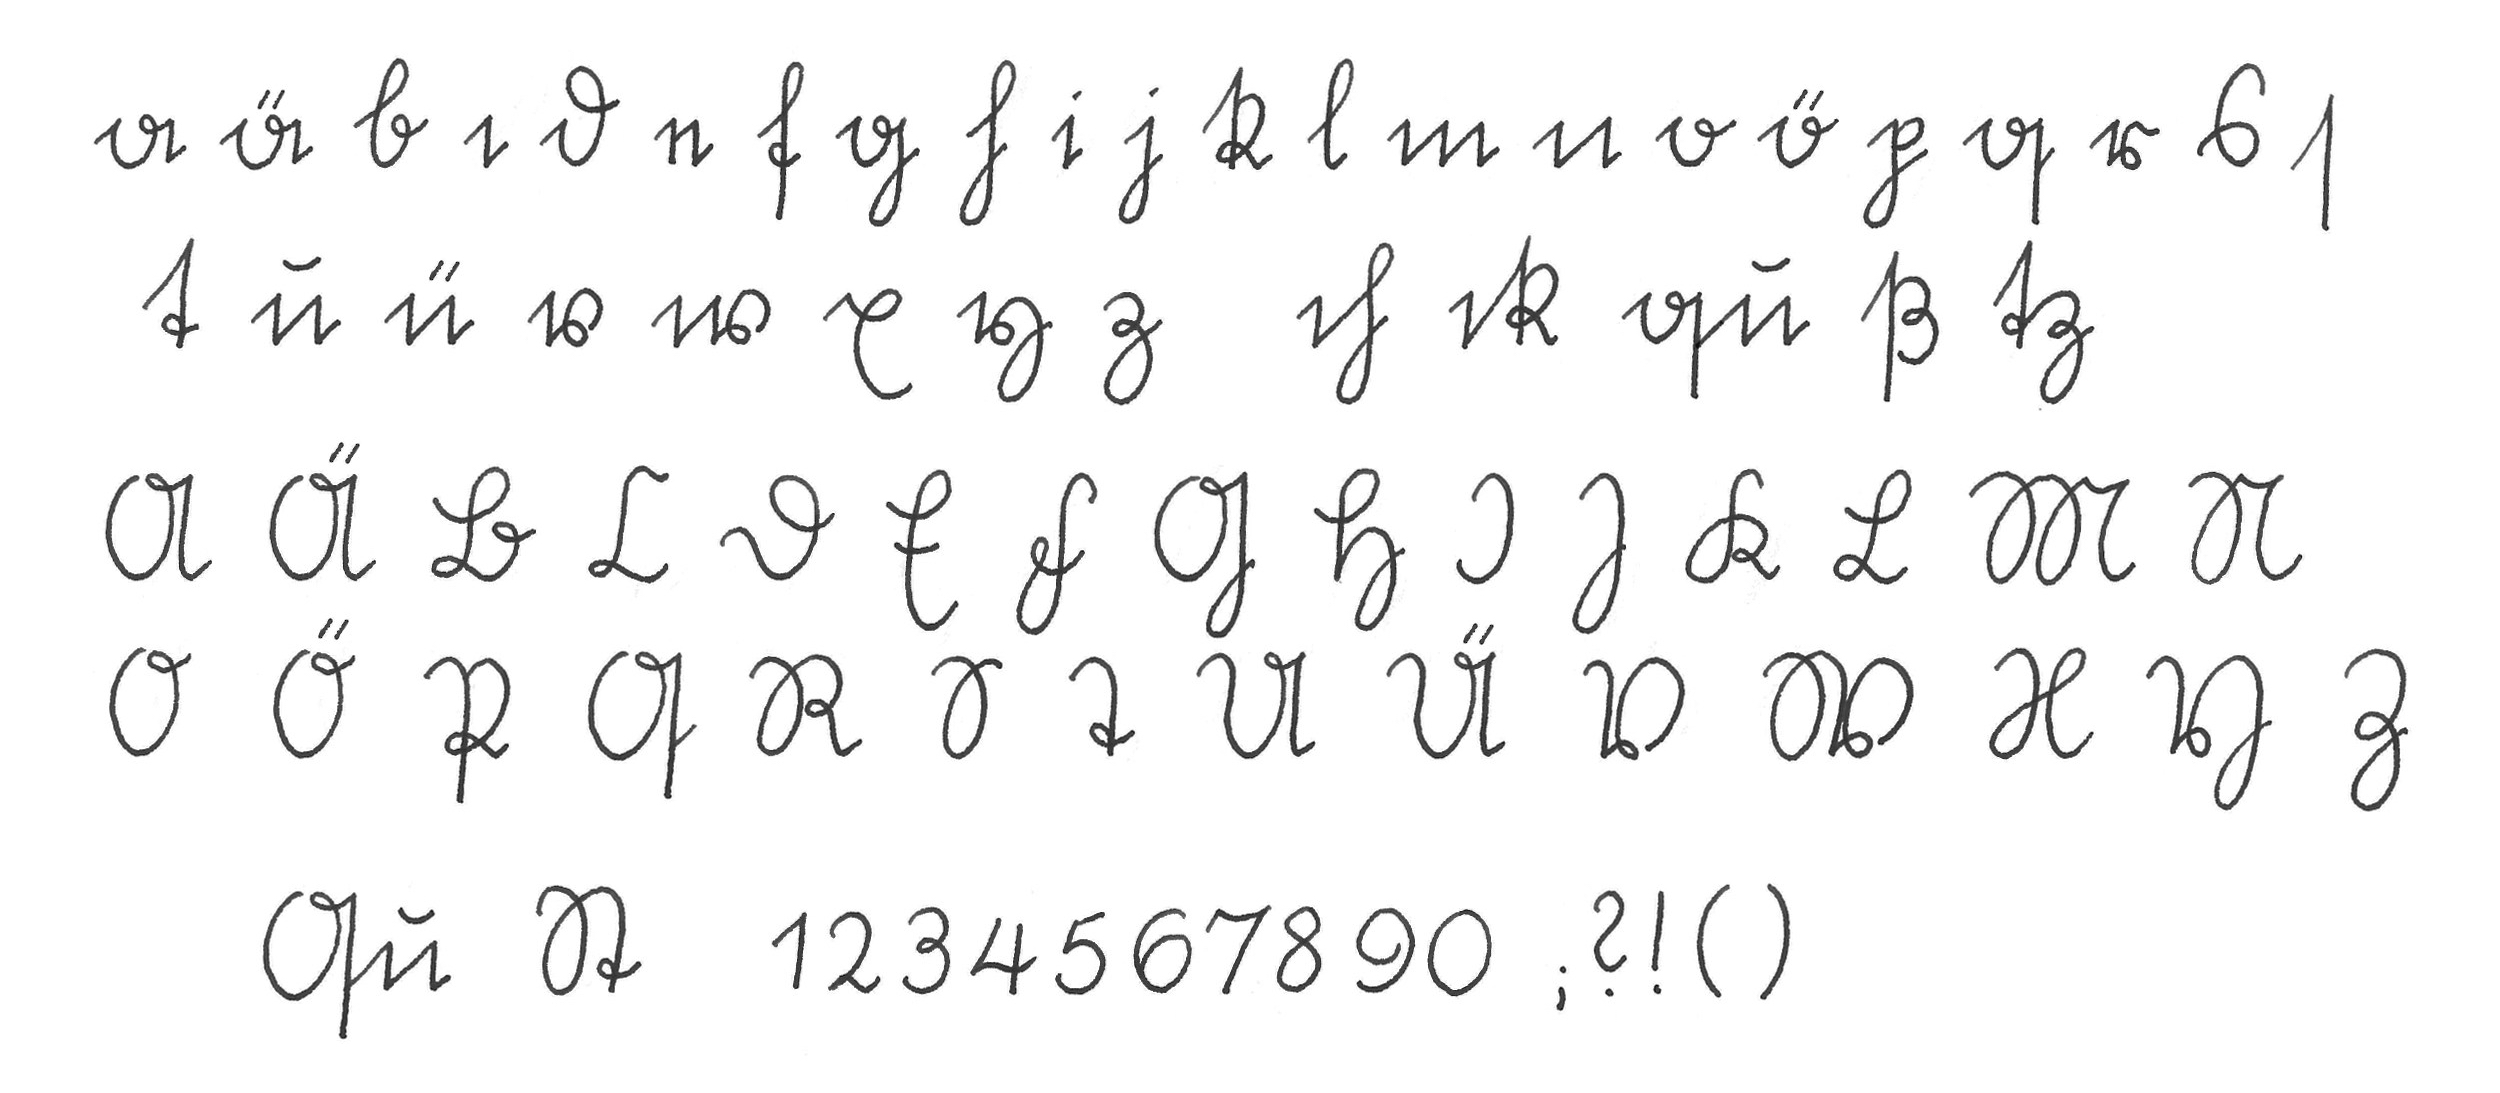 a ä b c d e f g h i j k l m n o ö p q r s ſ
t u ü v w x y z ch ck qu ß tz
A Ä B C D E F G H I J K L M N
O Ö P Q R S T U Ü V W X Y Z
Qu St 1 2 3 4 5 6 7 8 9 0 ; ? ! ( )